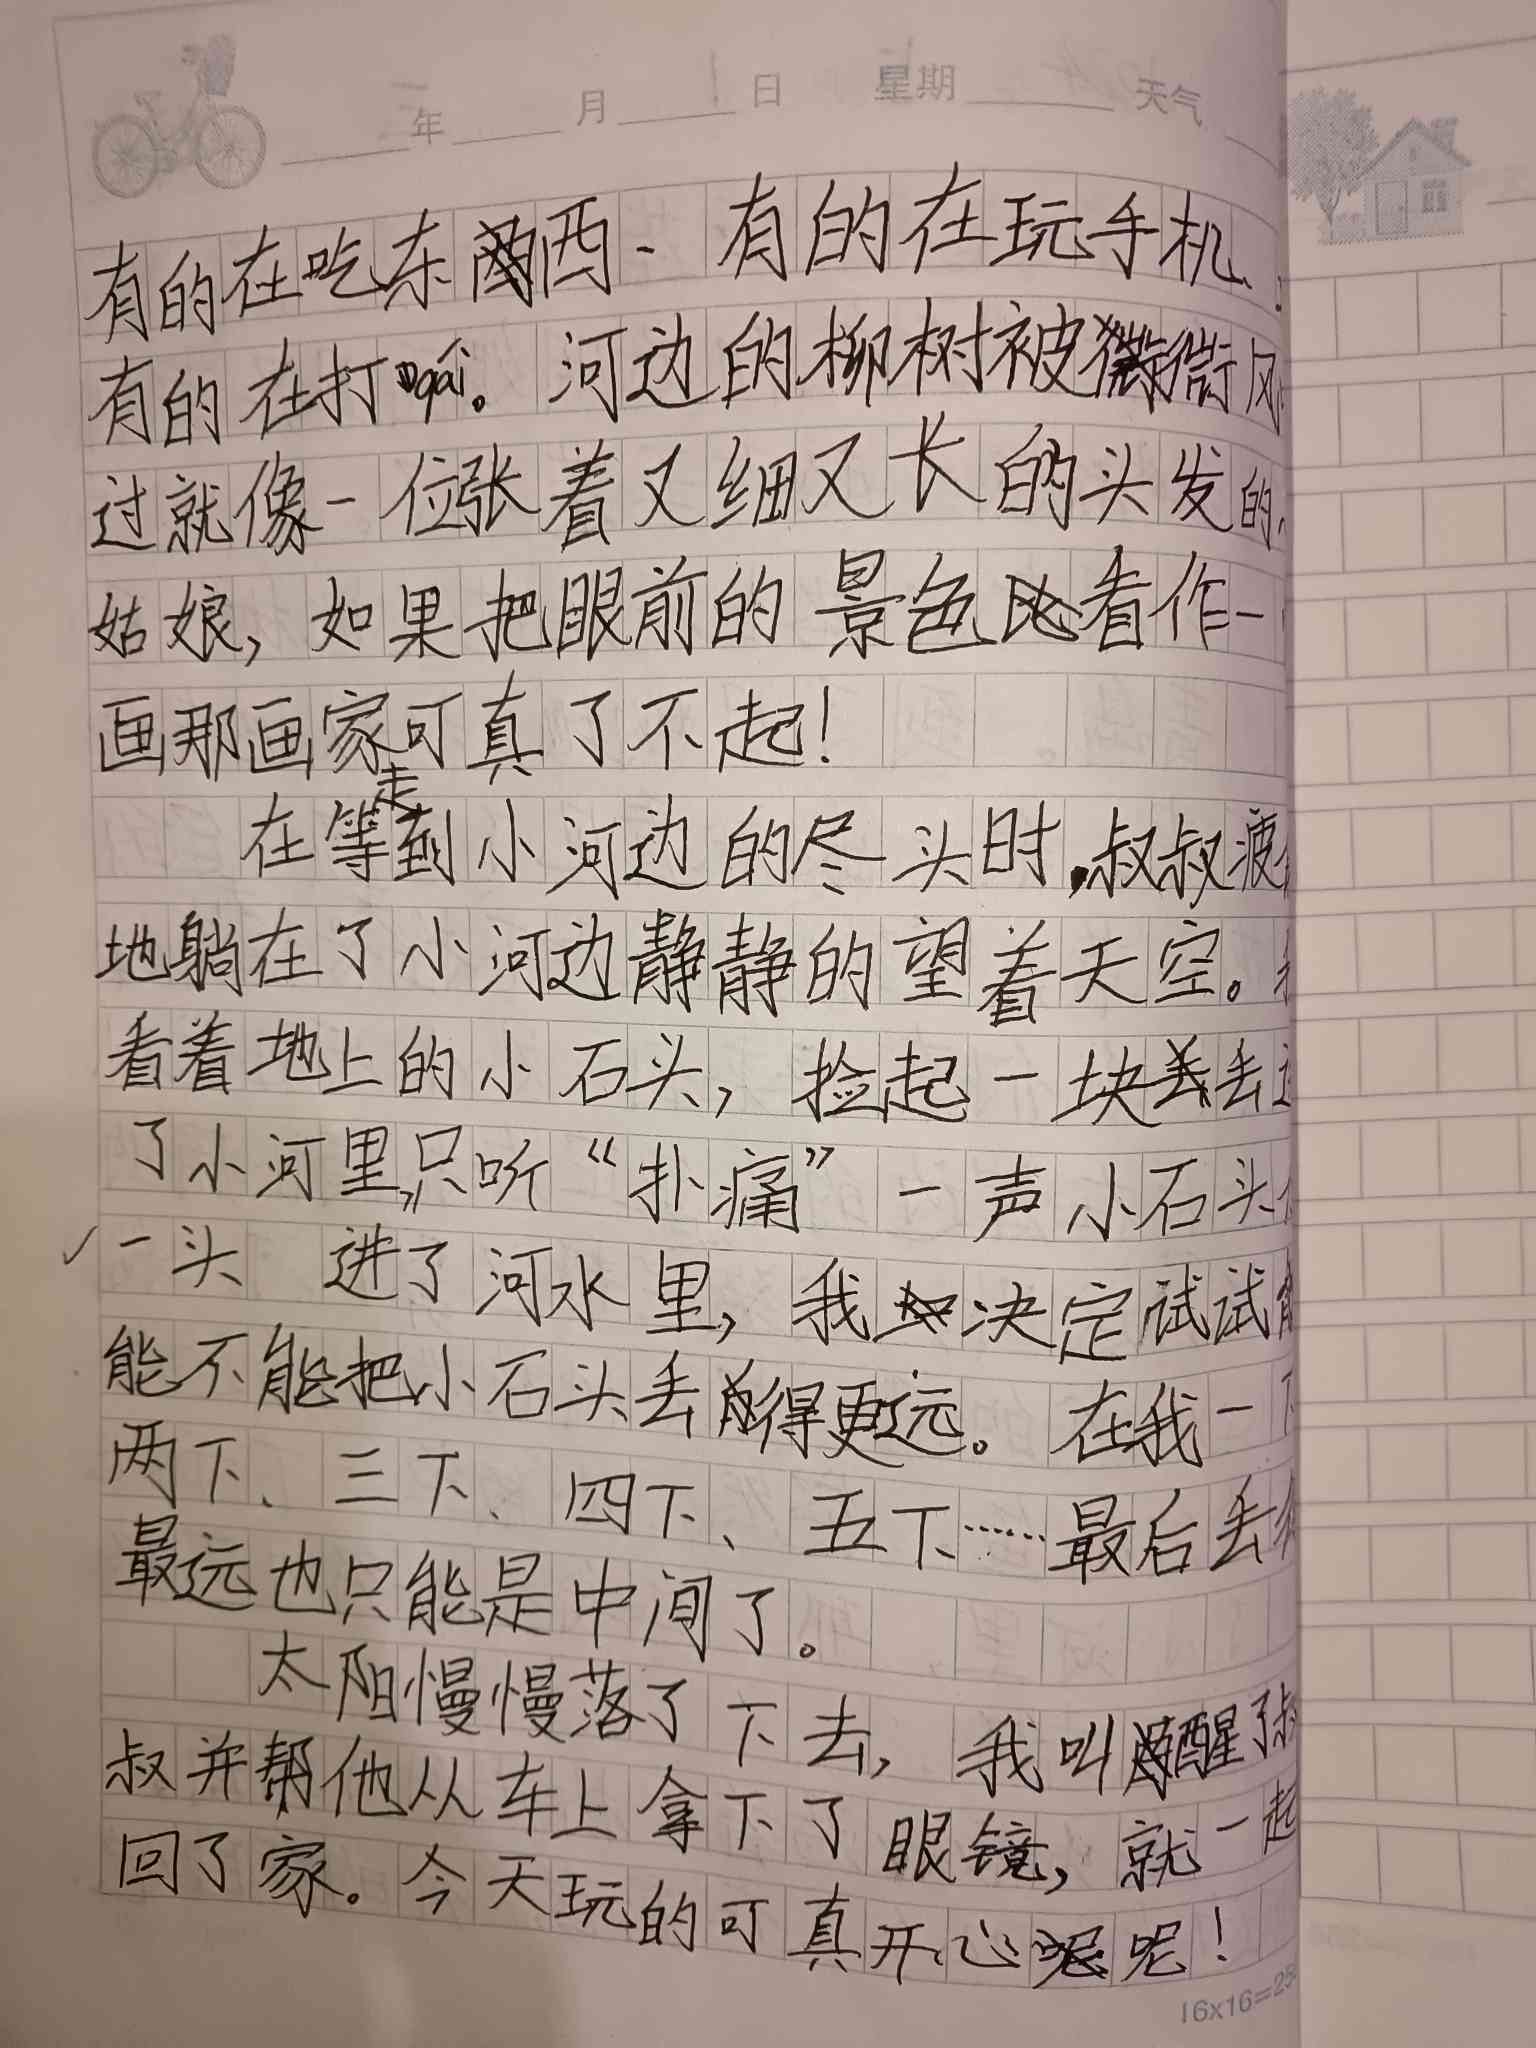 年 月 日 星期 天气
有的在吃东西、有的在玩手机、
有的在打qai。河边的柳树被微风
过就像一位张着又细又长的头发的
姑娘，如果把眼前的景色看作一
画那画家可真了不起！
在等走到小河边的尽头时，叔叔疲
地躺在了小河边静静的望着天空。
看着地上的小石头，捡起一块丢
了小河里，只听“扑痛”一声小石头
一头 进了河水里，我决定试试
能不能把小石头丢得更远。在我一
两下、三下、四下、五下……最后丢
最远也只能是中间了。
太阳慢慢落了下去，我叫醒了叔
叔并帮他从车上拿下了眼镜，就一起
回了家。今天玩的可真开心呢！
16x16=25